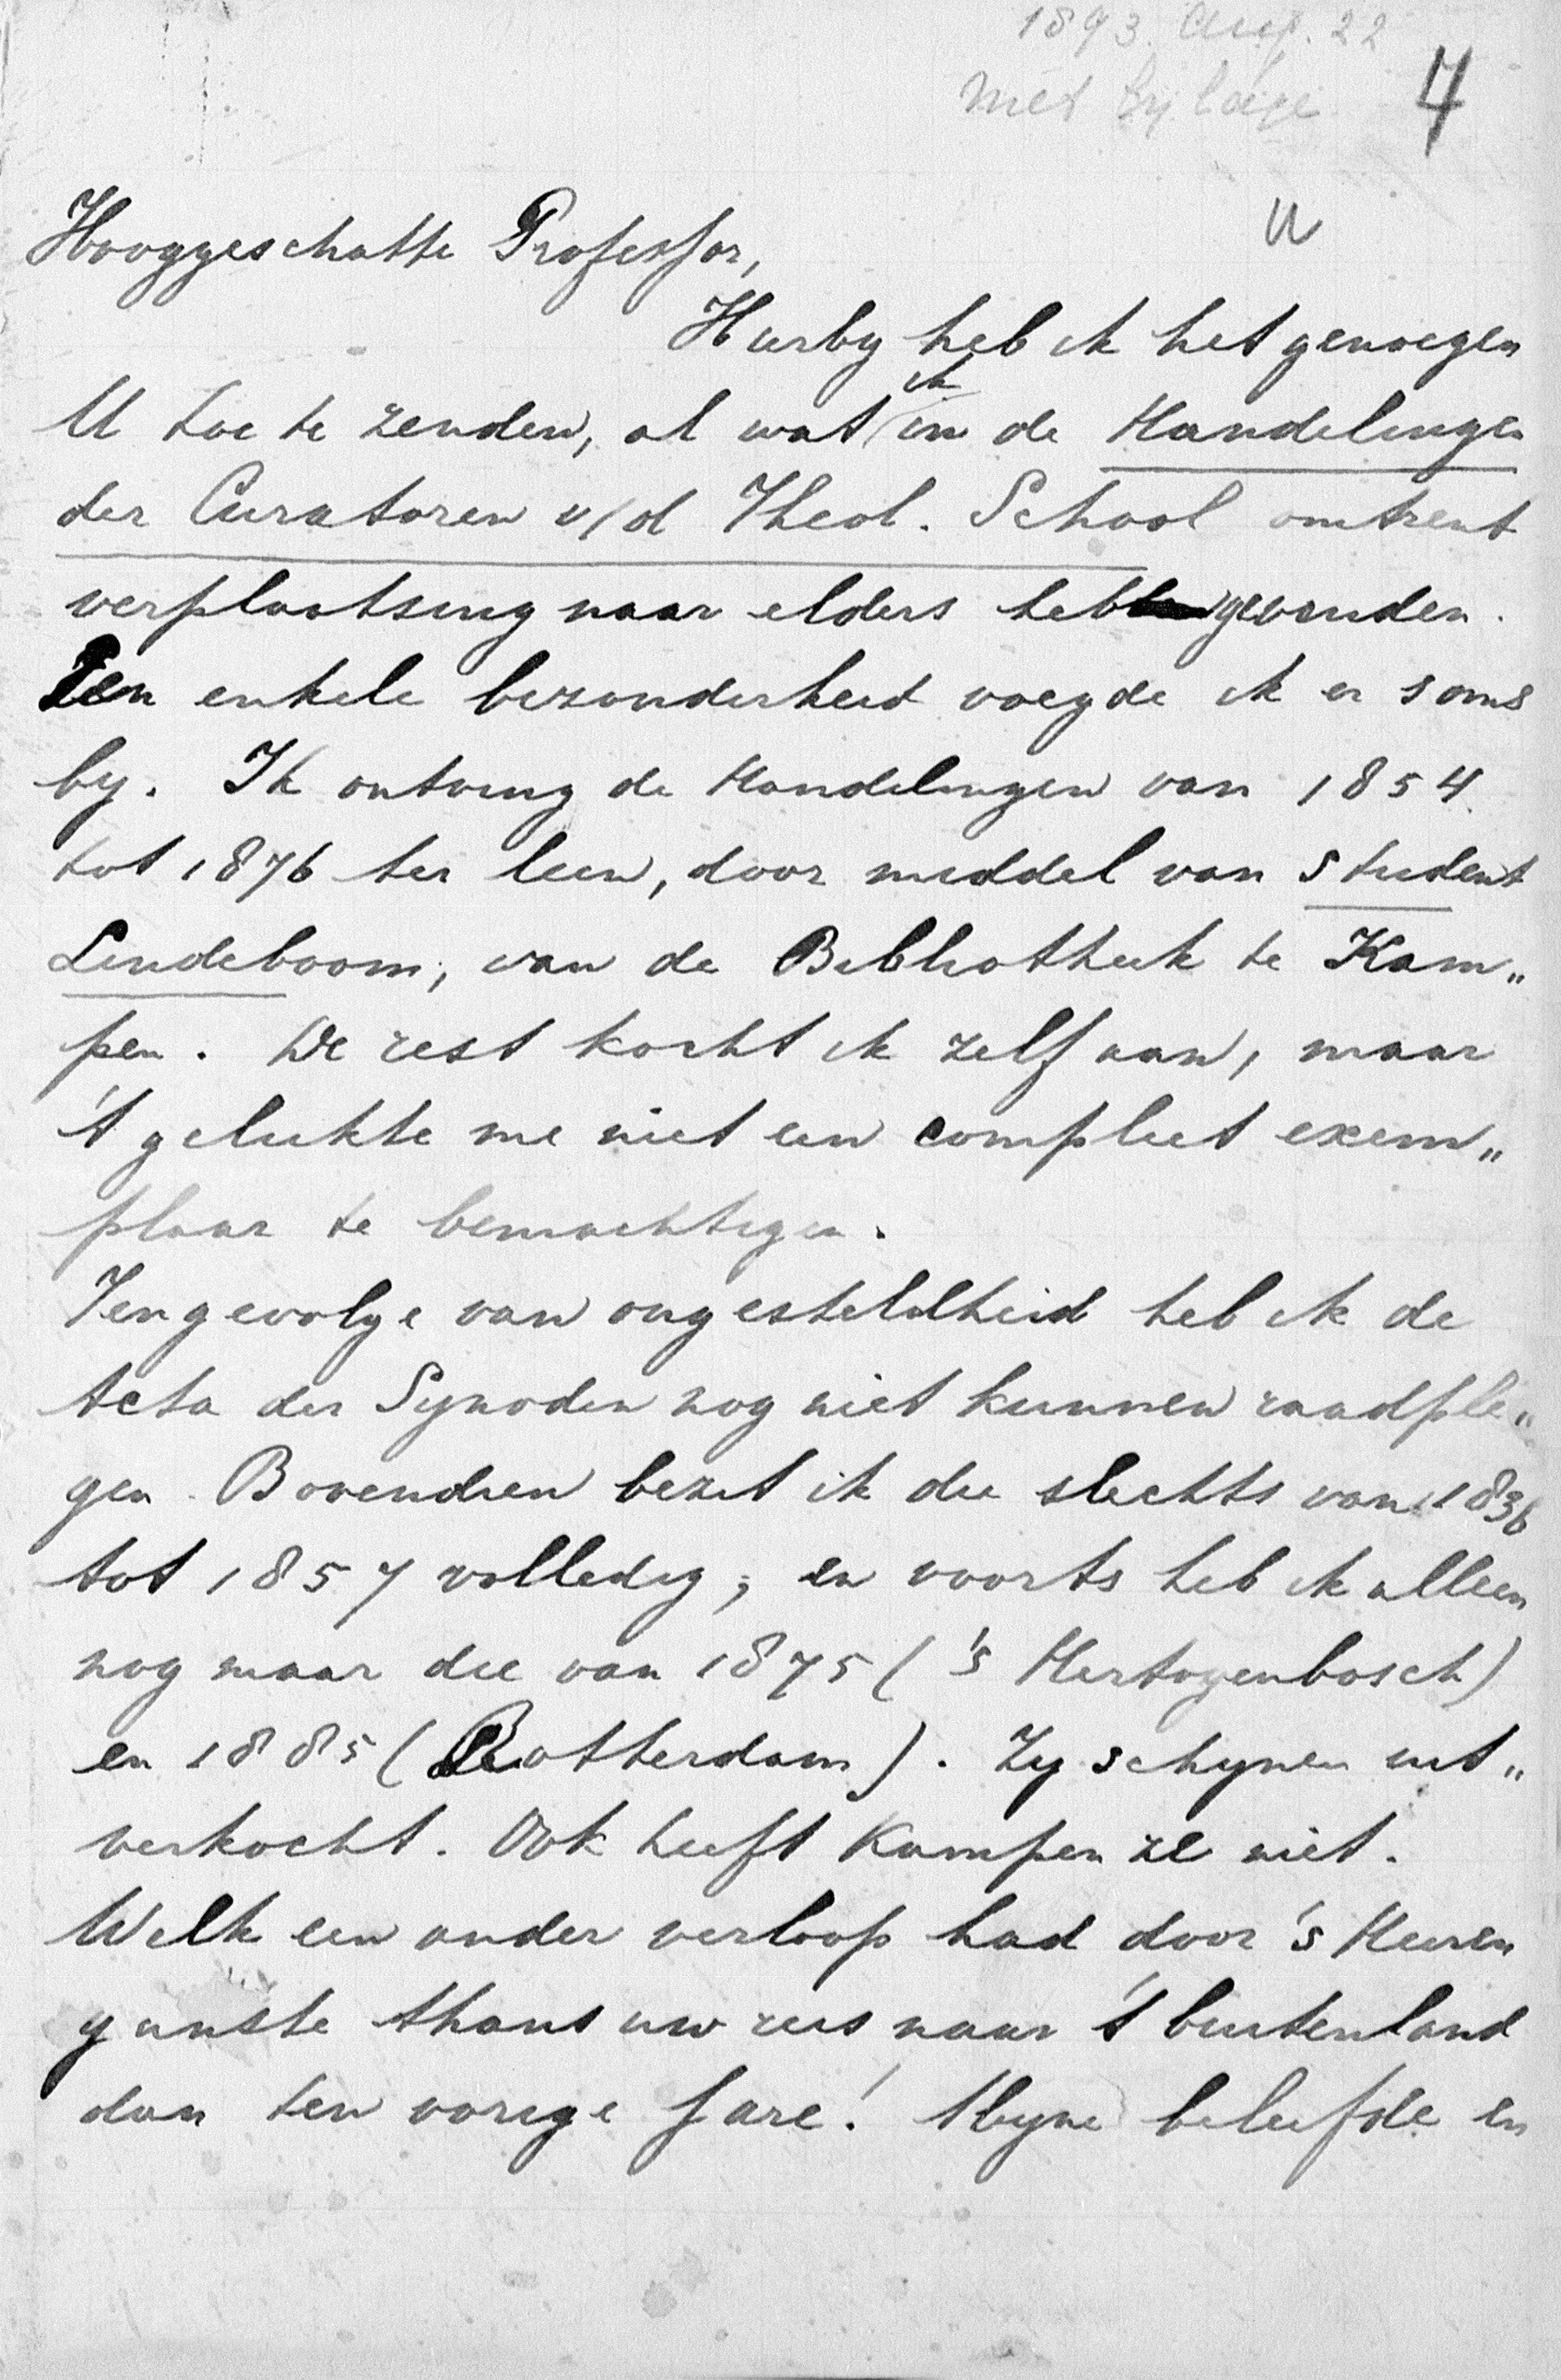 1893. Aug. 22
Met bylage
4
U
Hooggeschatte Professor,
Hierby heb ik het genoegen
U toe te zenden, al wat ik in de Handelingen
der Curatoren v/d Theol. School omtrent
verplaatsing naar elders heb gevonden.
Een enkele bezonderheid voegde ik er soms
by. Ik ontving de Handelingen van 1854
tot 1876 ter leen, door middel van student
Lindeboom, van de Bibliotheek te Kam„
pen. De rest kocht ik zelf aan, maar
't gelukte me niet een compleet exem„
plaar te bemachtigen.
Tengevolge van ongesteldheid heb ik de
Acta der Synoden nog niet kunnen raadple„
gen. Bovendien bezit ik die slechts van 1836
tot 1857 volledig; en voorts heb ik alleen
nog maar die van 1875 ('s Hertogenbosch)
en 1885 (Rotterdam). Zy schynen uit„
verkocht. Ook heeft Kampen ze niet.
Welk een ander verloop had door 's Heeren
gunste thans uw reis naar 't buitenland
dan ten vorige Jare! Myne beleefde en